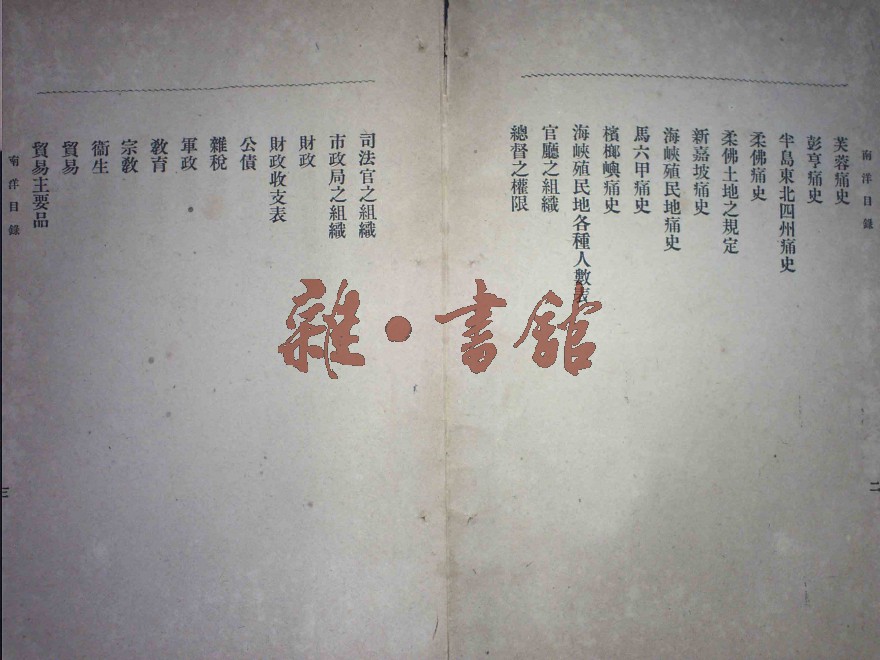 南洋目錄
二
芙蓉痛史
彭亨痛史
半島東北四州痛史
柔佛痛史
柔佛土地之規定
新嘉坡痛史
海峽殖民地痛史
馬六甲痛史
檳榔嶼痛史
海峽殖民地各種人數表
官廳之組織
總督之權限
司法官之組織
市政局之組織
財政
財政收支表
公債
雜稅
軍政
教育
宗教
衞生
貿易
貿易主要品
南洋目錄
三
雜·書館